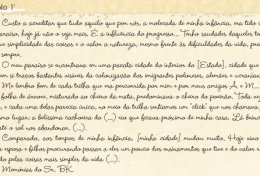 lo 1"
Custa a acreditar que tudo aquilo que por nós, a molecada de minha infância, era tido c
paraíso, hoje já não o seja mais. É a influência do progresso... Tenho saudades daqueles t
a simplicidade das coisas e o valor à natureza, mesmo frente às dificuldades da vida,
simples.
O meu paraíso se encontrava em uma pacata cidade do interior do [Estado], cidade que
em si traços bastante visíveis da colonização dos imigrantes poloneses, alemães e ucranian
Me lembro bem de cada trilha que era percorrida por mim e por meus amigos. A
folha de árvore, misturado ao cheiro da mata, predominava o cheiro do povoado. "Toda
, e cada uma delas parecia única, no meio da trilha sentíamos um 'click' que nos chamava
um lugar: a belíssima cachoeira do (...) rio que ficava próximo de minha casa. Lá brinca
até o sol nos abandonar, (...).
Comparado, aos tempos de minha infância, [minha cidade] mudou muito. Hoje vivo
esposa e filhos procurando passar a eles um pouco dos ensinamentos que tive e do valor
do pelas coisas mais simples da vida (...).
Memórias do Sr. BK.